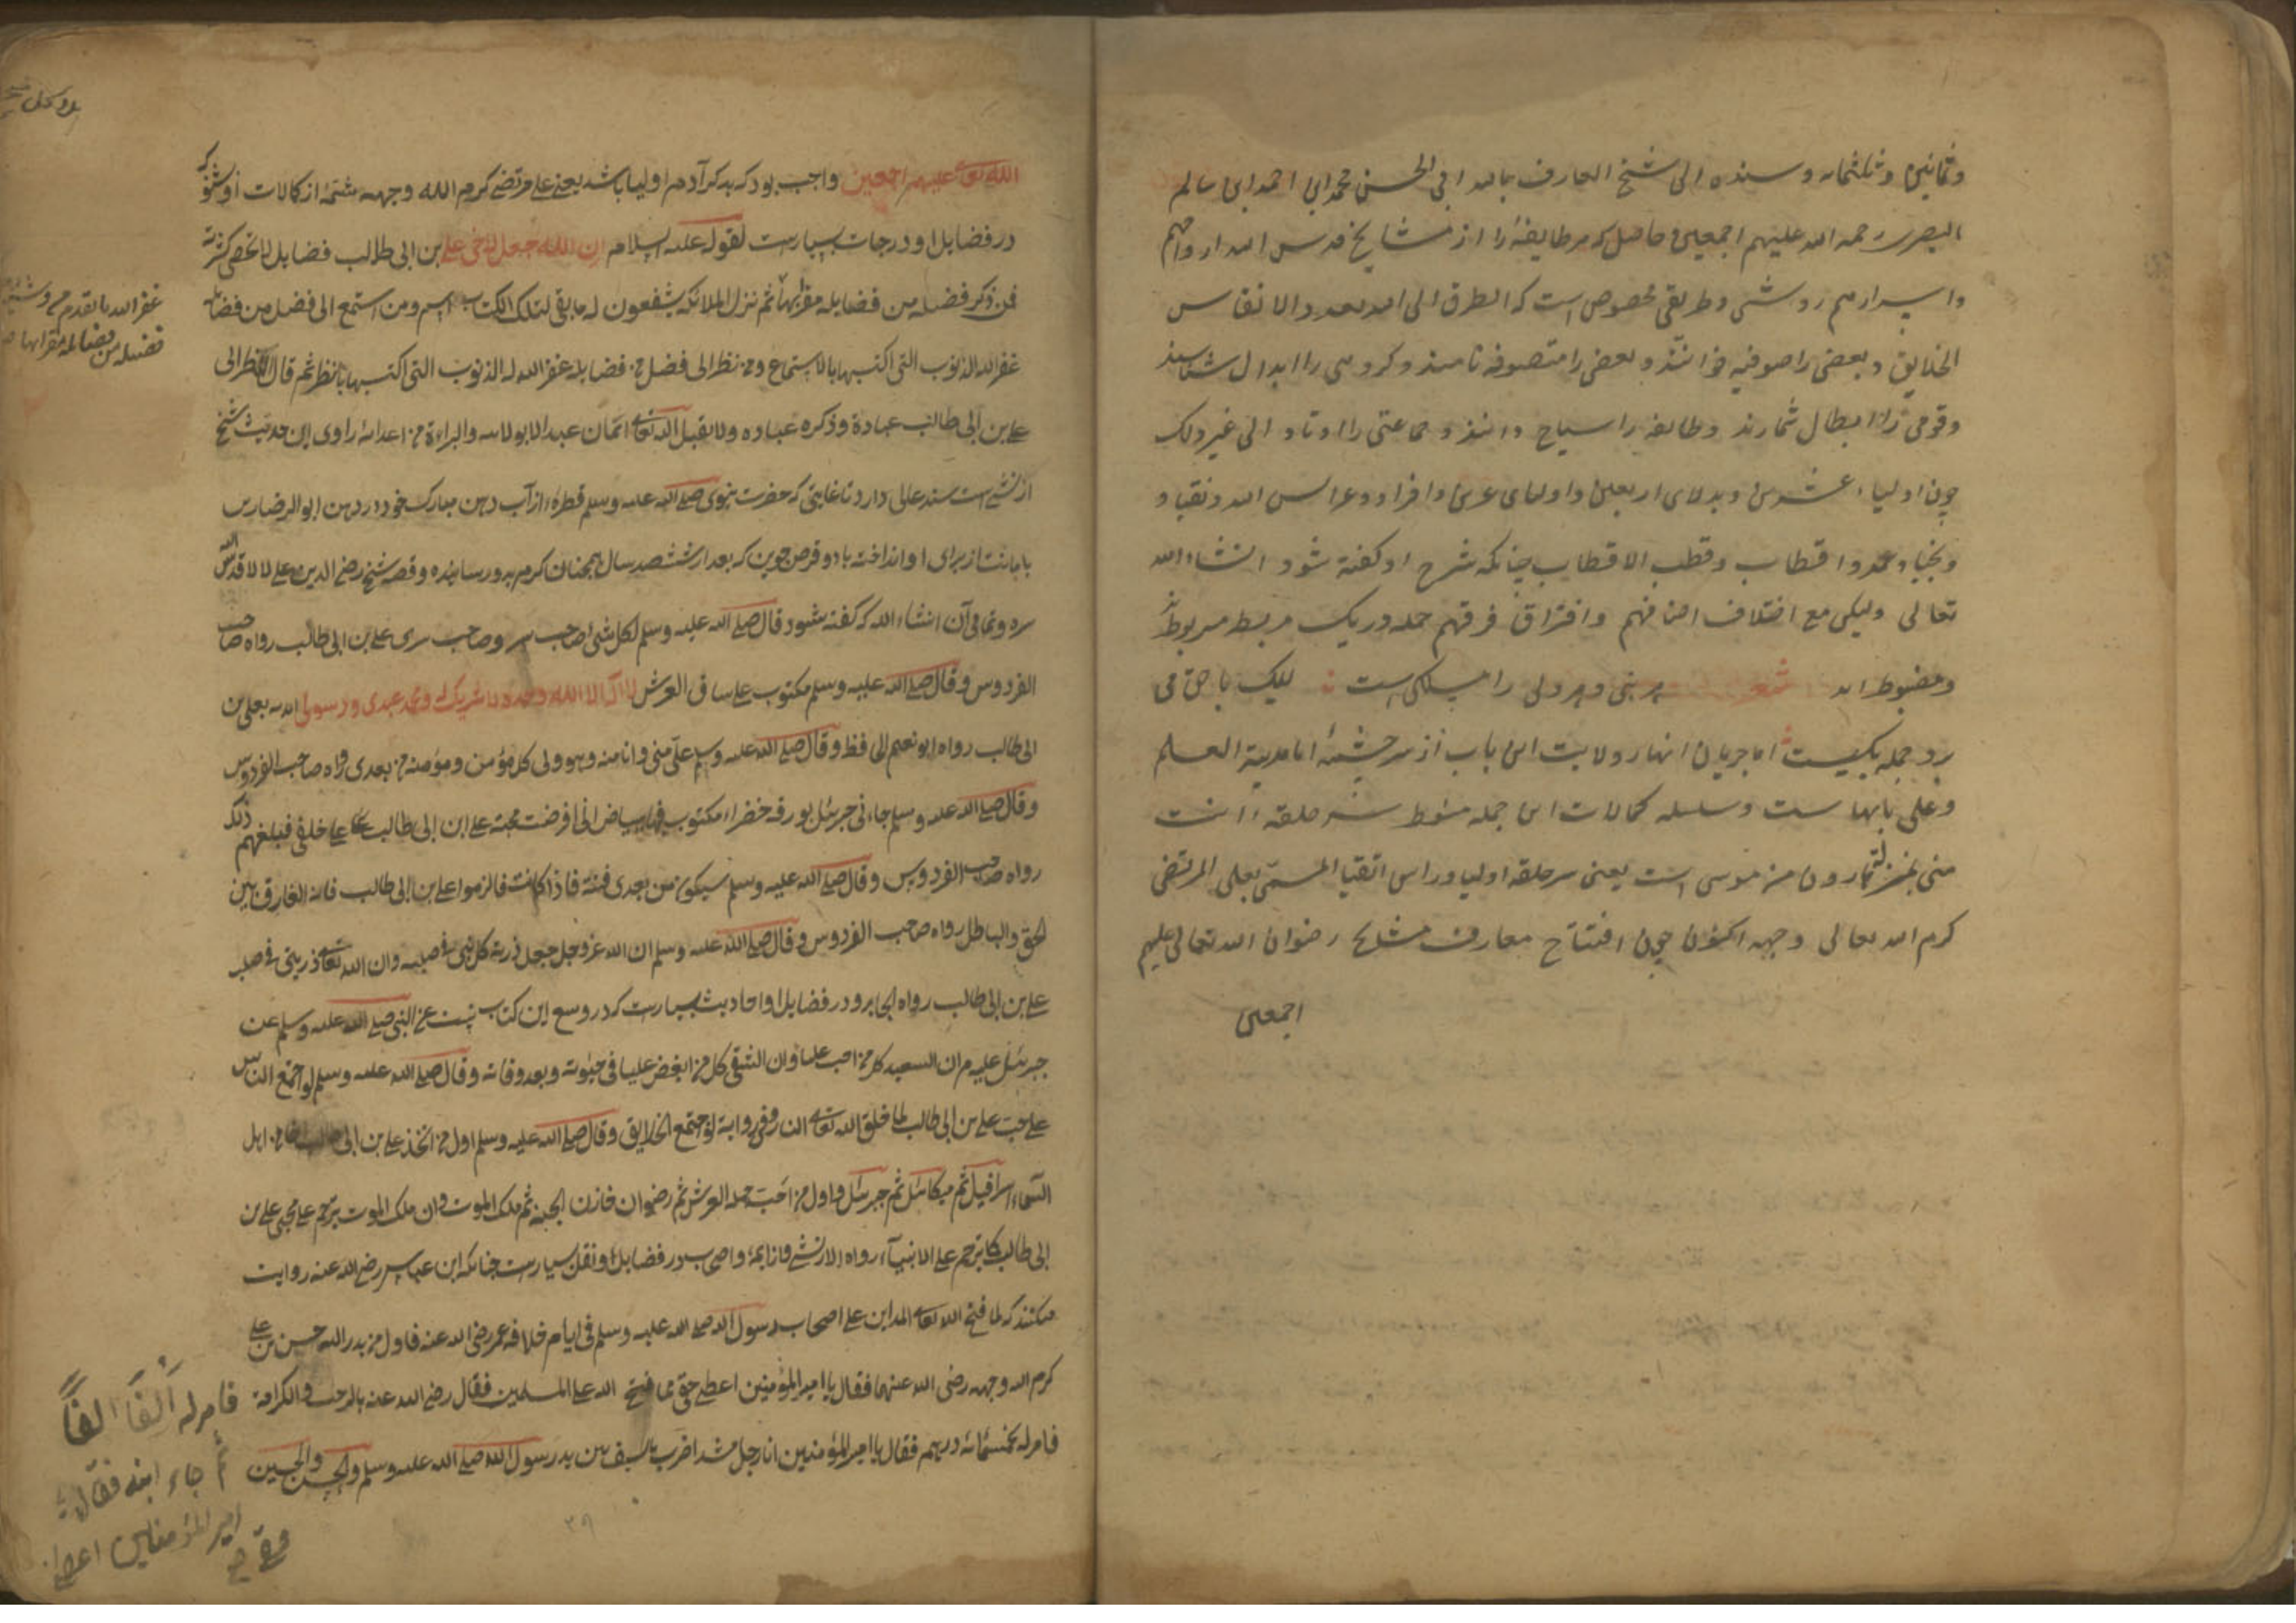 وثمانین وثلثمائه وسنده الی شیخ العارف بالله ابی الحسن محمد ابن احمد ابن سالم
البصری رحمه الله علیهم اجمعین وحاصل که هر طایفهٔ را از مشایخ قدس الله ارواحهم
واسرارهم روشی وطریقی مخصوص است که الطرق الی الله بعدد الانفاس
الخلایق وبعضی را صوفیه خوانند وبعضی را متصوفه نامند وکروهی را ابدال شناسند
وقومی را ابطال شمارند وطایفه را سیاح دانند وجماعتی را اوتاد الی غیر ذلک
چون اولیاء عشرین وبدلای اربعین واولیای عرس وافراد وعرائس الله ونقبا و
ونجبا وعمد واقطاب وقطب الاقطاب چنانکه شرح او کفته شود انشاء الله
تعالی ولیکن مع اختلاف اصنافهم وافتراق فرقهم جمله در یک مربط مربوطند
ومضبوط اند شعر هر نبی وهر ولی را مسلکی است لیک با حق می
برد جمله یکیست اما جریان انهار ولایت این باب از سرچشمهٔ انا مدینة العلم
وعلی بابها ست وسلسله کمالات این جمله منوط بسر حلقه انت
منی بمنزلة هارون من موسی است یعنی سرحلقه اولیا وراس اتقیا المسمی بعلی المرتضی
کرم الله تعالی وجهه اکنون چون افتتاح معارف مشایخ رضوان الله تعالی علیهم
اجمعین
الله تعالی علیهم اجمعین واجب بود که بذکر آدم اولیا باشد یعنی علی مرتضی کرم الله وجهه شمهٔ از کمالات او شود که
در فضایل او ودرجات بسیارست لقوله علیه السلام ان الله جعل لاخی علی بن ابی طالب فضایل لا تحصی کثرة
فمن ذکر فضیلة من فضایله مقرا بها ثم نزل الملائکه یشفعون له ما بقی لتلک الکتاب اسم ومن استمع الی فضل من فضایله
غفر الله الذنوب التی اکتسبها بالاستماع ومن نظر الی فضل من فضایله غفر الله له الذنوب التی اکتسبها بالنظر ثم قال النظر الی
علی بن ابی طالب عبادة وذکره عباده ولا یقبل الله تعالی ایمان عبد الا بولایته والبراءة من اعدائه راوی این حدیث شیخ
ازنشی است سند عالی دارد تا غایتی که حضرت نبوی صلی الله علیه وسلم قطرهٔ از آب دهن مبارک خود در دهن ابو الرضا رتن
بامانت از برای او انداخته با دو قرص جوین که بعد از ششصد سال همچنان کرم بدو رسانیده وقصه شیخ رضی الدین علی لالا قدس الله
سره وتمامی آن انشاء الله که کفته شود قال صلی الله علیه وسلم لکل شئ صاحب سر وصاحب سری علی بن ابی طالب رواه صاحب
الفردوس وقال صلی الله علیه وسلم مکتوب علی ساق العرش لا اله الا الله وحده لا شریک له ومحمد عبدی ورسولی ایدته بعلی بن
ابی طالب رواه ابو نعیم الحافظ وقال صلی الله علیه وسلم علی منی وانا منه وهو ولی کل مؤمن ومؤمنه من بعدی رواه صاحب الفردوس
وقال صلی الله علیه وسلم جاءنی جبرئل بورقه خضراء مکتوب فیها ببیاض انی افرضت محبة علی ابن ابی طالب علی خلقی فبلغهم ذلک
رواه صاحب الفردوس وقال صلی الله علیه وسلم سیکون من بعدی فتنة فاذا کانت فالزموا علی بن ابی طالب فانه الفارق بین
الحق والباطل رواه صاحب الفردوس وقال صلی الله علیه وسلم ان الله عز وجل جعل ذریة کل نبی فی صلبه وان الله تعالی جعل ذریتی فی صلب
علی بن ابی طالب رواه الجابر ودر فضایل او احادیث بسیارست که در وسع این کتاب نیست عن النبی صلی الله علیه وسلم عن
جبرئل علیه م ان السعید کل من احب علیا وان الشقی کل من ابغض علیا فی حیوته وبعد وفاته وقال صلی الله علیه وسلم لو اجتمع الناس
علی حب علی بن ابی طالب لما خلق الله تعالی النار وفی روایة لو اجتمع الخلایق وقال صلی الله علیه وسلم اول من اتخذ علی بن ابی طالب اخا من اهل
السماء اسرافیل ثم میکائل ثم جبرئل واول من احب حملة العرش ثم رضوان خازن الجنه ثم ملک الموت وان ملک الموت یترحم علی محبی علی بن
ابی طالب کما یترحم علی الانبیآء رواه الازنشی وائمه واصحاب در فضایل او نقل بسیارست چنانکه ابن عباس رضی الله عنه روایت
میکند که لما فتح الله تعالی المداین علی اصحاب رسول الله صلی الله علیه وسلم فی ایام خلافه عمر رضی الله عنه فاول من بدر الیه حسن بن علی
کرم الله وجهه رضی الله عنهما فقال یا امیر المؤمنین اعطنی حقی مما فتح الله علی المسلمین فقال رضی الله عنه بالرحب والکرامة
فامر له بخمسمائه درهم فقال یا امیر المؤمنین انا رجل مشد اضرب بالسیف بین ید رسول الله صلی الله علیه وسلم والحسن والحسین
غفر الله ما تقدم من
فضیله من فضائله مقرا بها
فامر له الفا الفا
ثم جاء ابنه فقال یا
امیر المؤمنین اعطنی
حقی
۳۹